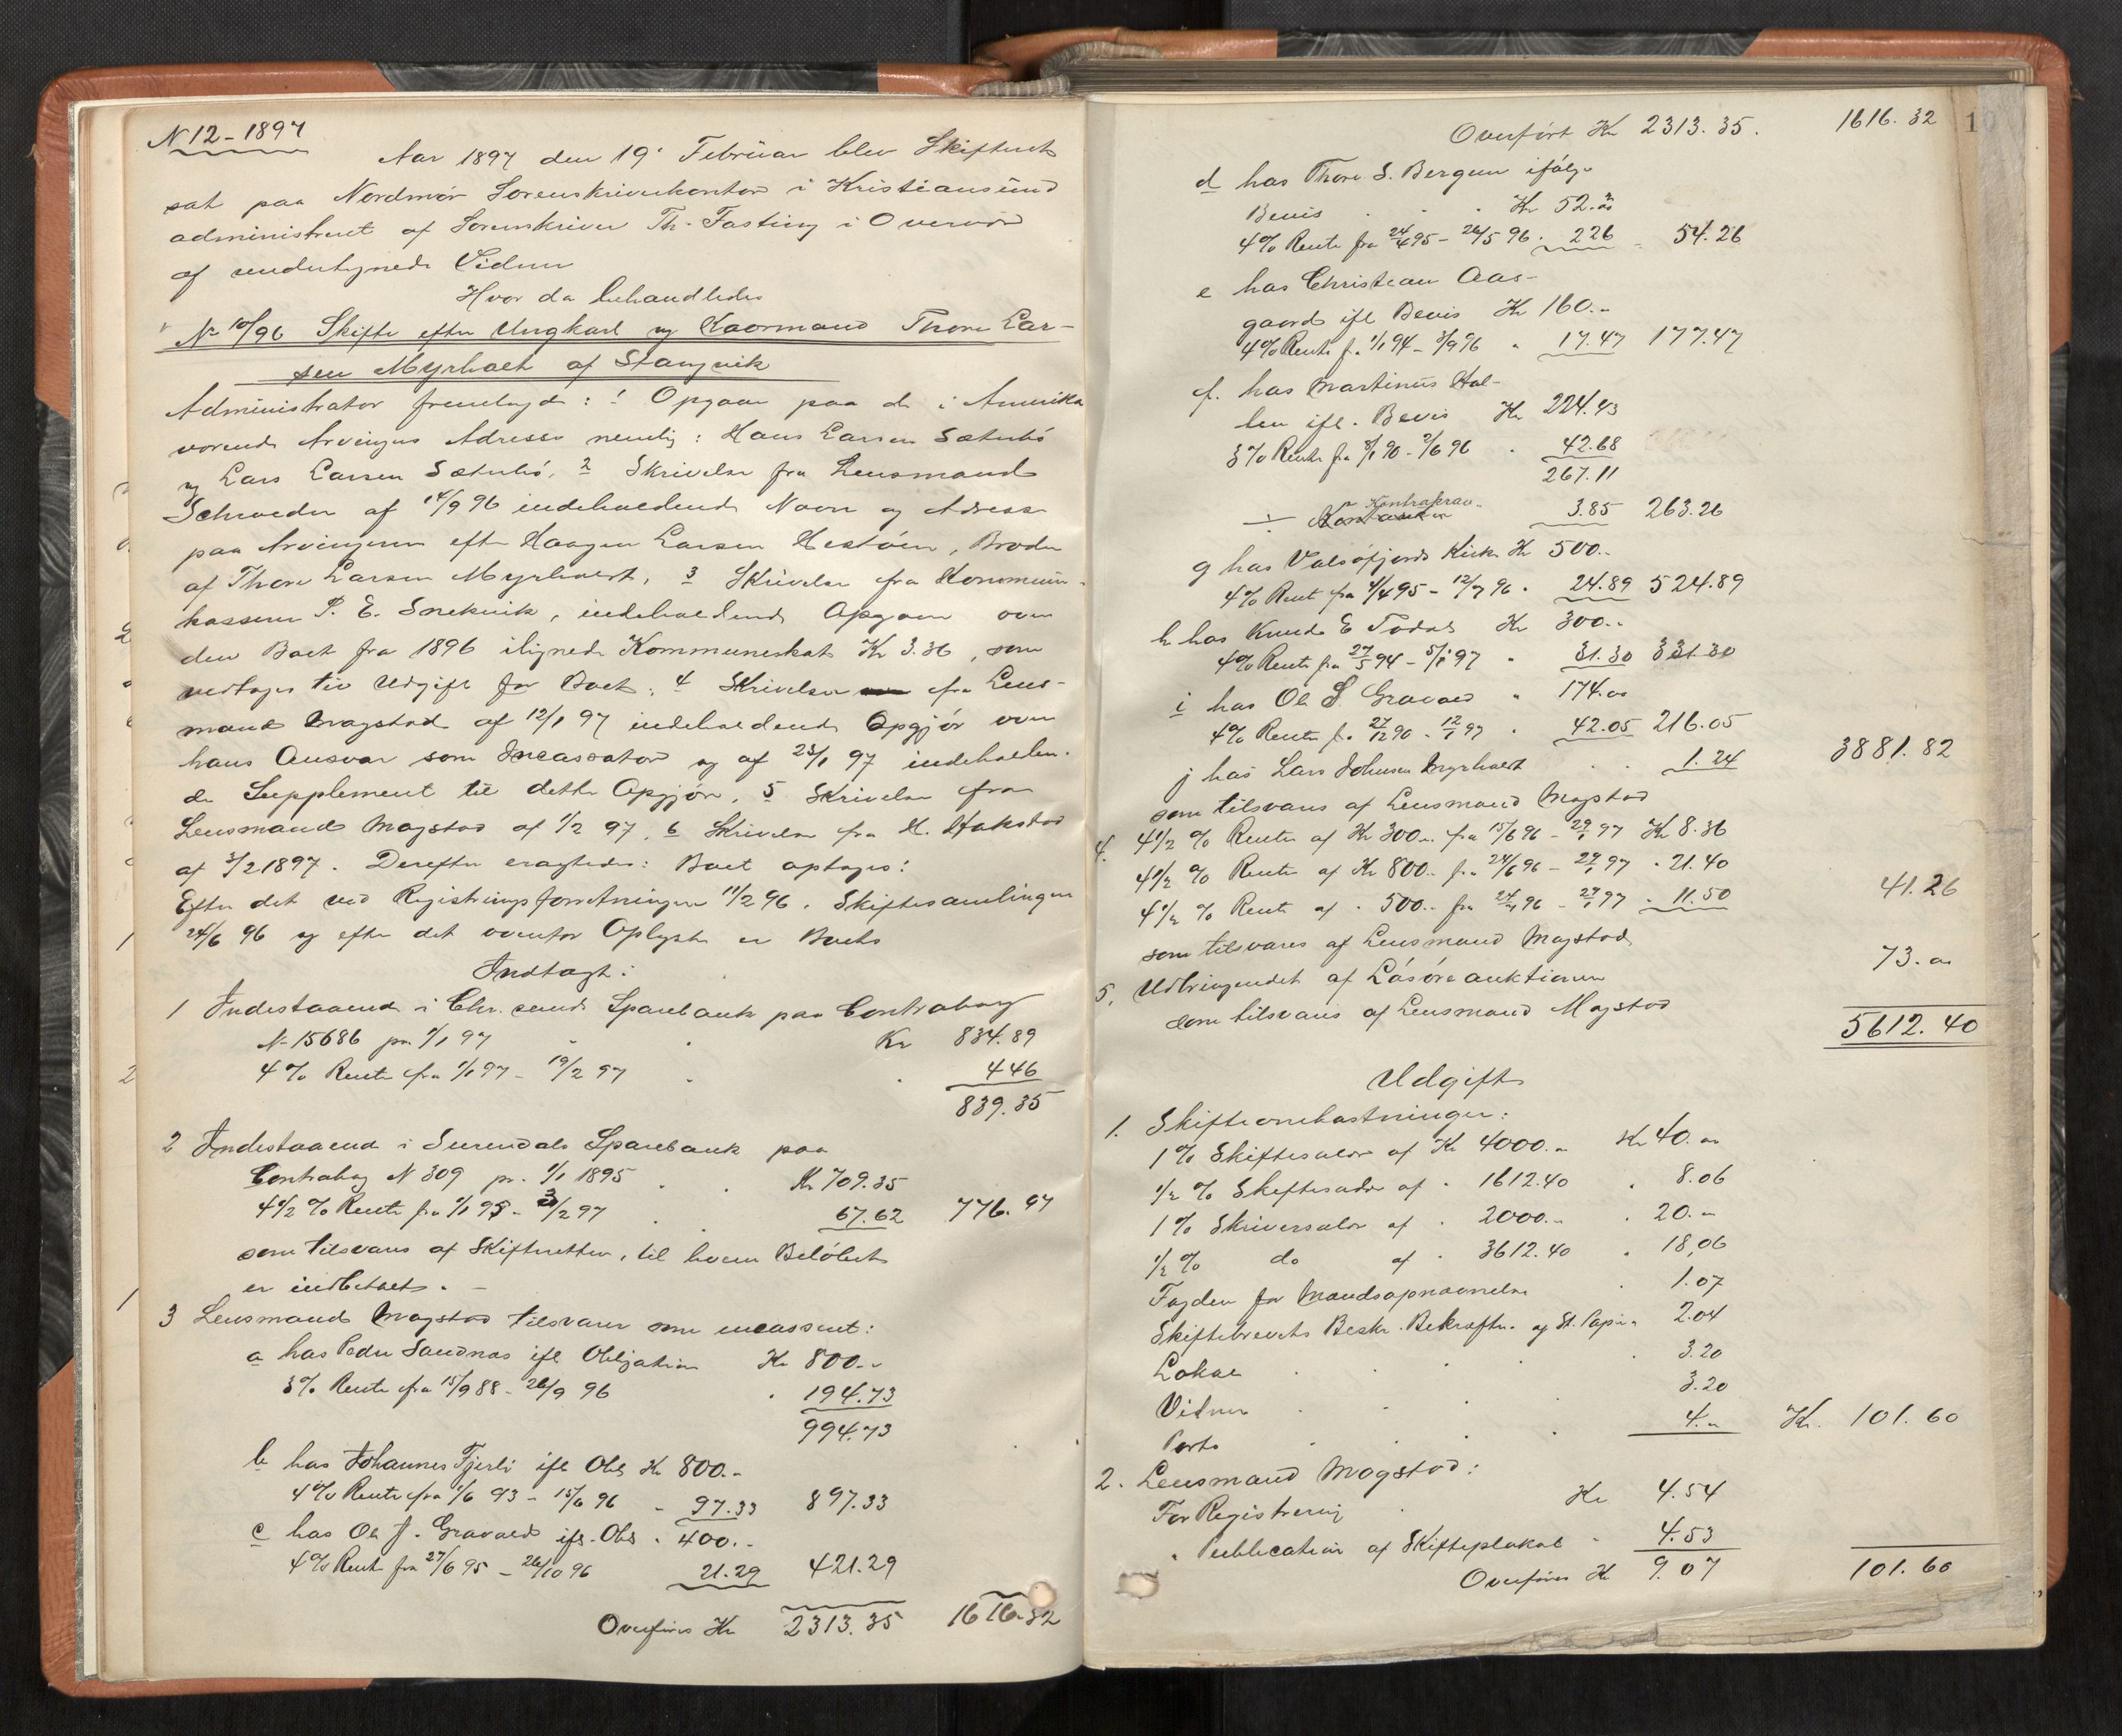 N 12 - 1897
Aar 1897 den 19. Februar blev Skifteret
sat paa Nordmør Sorenskriverkontor i Kristiansund
administreret af Sorenskriver Th. Fasting i Overvær
af undertegnede Vidner
Hvor da behandledes
No 10/96 Skifte efter Ungkarl og Kaarmand Thore Lar-
sen Myrholt af Stangvik
Administrator fremlagde: 1 Opgave paa de i Amerika
værende Arvingers Adresse nemlig: Hans Larsen Sæterbø
og Lars Larsen Sæterbø, 2 Skrivelse fra Lensmand
Schrøder af 14/9 96 indeholdende Navne og Adresse
paa Arvingerne efter Haagen Larsen Hestøen, Broder
af Thore Larsen Myrholt, 3 Skrivelse fra Kommune-
kasserer P. E. Snekvik, indeholdende Opgave over
den Boet for 1896 ilignede Kommuneskat Kr 3.36, som
vedtages til Udgift for Boet, 4 Skrivelse fra Lens-
mand Mogstad af 12/1 97 indeholdende Opgjør over
hans Ansvar som Incassator og af 23/1 97 indeholden-
de Supplement til dette Opgjør, 5 Skrivelse fra
Lensmand Mogstad af 1/2 97, 6 Skrivelse fra H. Hakstad
af 3/2 1897. Derefter eragtedes: Boet optages:
Efter det ved Registreringsforretningen 11/2 96, Skiftesamlingen
24/6 96 og efter det ovenfor Oplyste er Boets
Indtægt:
1 Indestaaende i Chr.sunds Sparebank paa Contrabog
N 15686 pr. 1/1 97 Kr 834.89
4 % Rente fra 1/1 97 - 19/2 97 446
839.35
2 Indestaaende i Surendals Sparebank paa
Contrabog N 309 pr. 1/1 1895 Kr 709.35
4 1/2 % Rente fra 1/1 95 - 3/2 97 67.62 776.97
som tilsvares af Skifteretten, til hvem Beløbet
er indbetalt. -
3 Lensmand Mogstad tilsvarer som incasseret:
a hos Peder Sandnæs ifl Obligation Kr 800.-
3% Rente fra 15/9 88 - 26/9 96 194.73
994.73
b hos Johannes Fjerli ifl Obl Kr 800.-
4% Rente fra 1/6 93 - 15/6 96 97.33 897.33
c hos Ole J. Gravvold ifl. Obl. 400.-
4% Rente fra 27/6 95 - 26/10 96 21.29 421.29
Overføres Kr 2313.35 1616.32
Overført Kr 2313.35. 1616.32
d hos Thore S. Bergem ifølge
Bevis Kr 52.00
4% Rente fra 24/4 95 - 26/5 96. 226 54.26
e hos Christian Aas-
gaard ifl Bevis Kr 160.-
4% Rente fr. 1/1 94 - 3/9 96 17.47 177.47
f. hos Martinus Hal-
len ifl. Bevis Kr 224.43
3% Rente fra 3/1 90 - 2/6 96 42.68
267.11
÷ Kontrakrav 3.85 263.26
g hos Valsøfjords Kirke Kr 500.-
4% Rente fra 4/4 95 - 12/7 96 24.89 524.89
h hos Knud E Todal Kr 300.-
4% Rente fra 27/5 94 - 5/1 97 31.30 331.30
i hos Ole S. Gravvold " 174.00
4% Rente fr. 27/12 90 - 12/1 97 42.05 216.05
j hos Lars Johnsen Myrholt 1.24 3881.82
som tilsvares af Lensmand Mogstad
4. 4 1/2 % Rente af Kr 300.- fra 15/6 96 - 29/1 97 Kr 8.36
4 1/2 % Rente af Kr 800.- fra 24/6 96 - 29/1 97 " 21.40
4 1/2 % Rente af " 500.- fra 24/7 96 - 29/1 97 " 11.50 41.26
som tilsvares af Lensmand Mogstad
5. Udbringendet af Løsøreauktionen 73.00
som tilsvares af Lensmand Mogstad
5612.40
Udgift
1. Skifteomkostninger:
1 % Skiftesalær af Kr 4000.- Kr 40.00
1/2 % Skiftesalær af " 1612.40 " 8.06
1 % Skriversalær af " 2000.- " 20.-
1/2 % do af " 3612.40 " 18,06
Fogden for Mandsopnævnelse 1.07
Skiftebrevets Beskr. Bekræftn. og St. Papir 2.04
Lokale 3.20
Vidner 3.20
Porto 4.- Kr. 101.60
2. Lensmand Mogstad:
For Registrering Kr 4.54
" Publication af Skifteplakat " 4.53
Overføres Kr 9.07 101.60